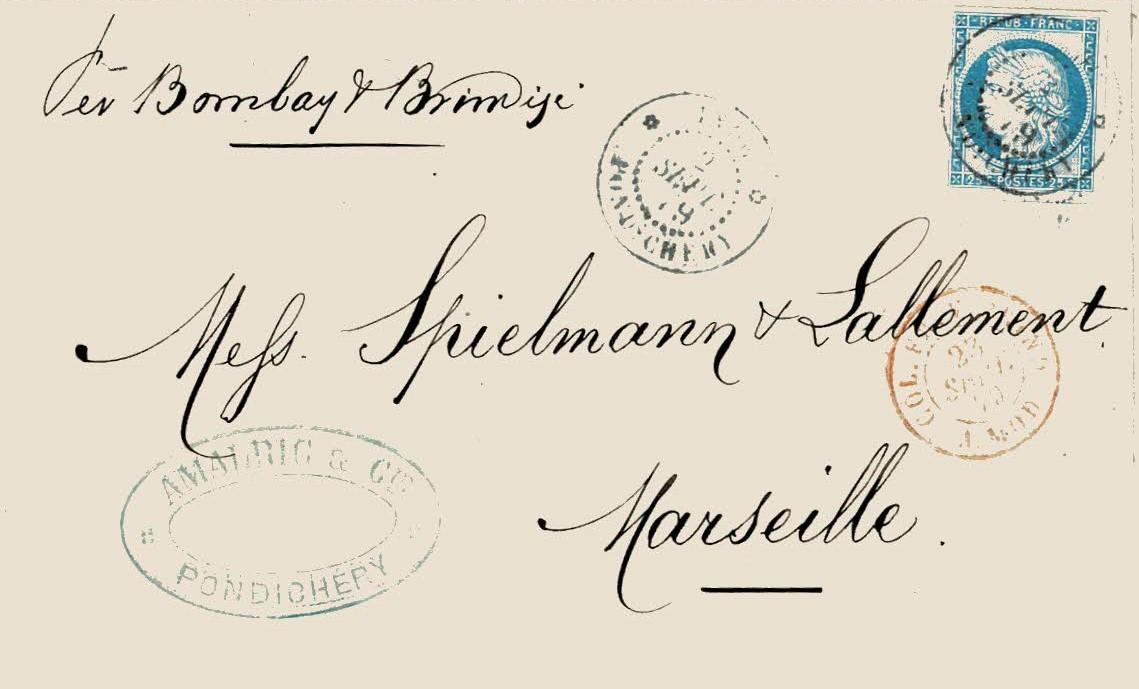 REPUB·FRANC·
25 POSTES 25
Per Bombay & Brindisi
SEPT
79
PONDICHERY
SEPT
79
PONDICHERY
Mess. Spielmann & Lallement
COL. F
23
SEPT
MOD
AMALRIC & Cie
PONDICHÉRY
Marseille.